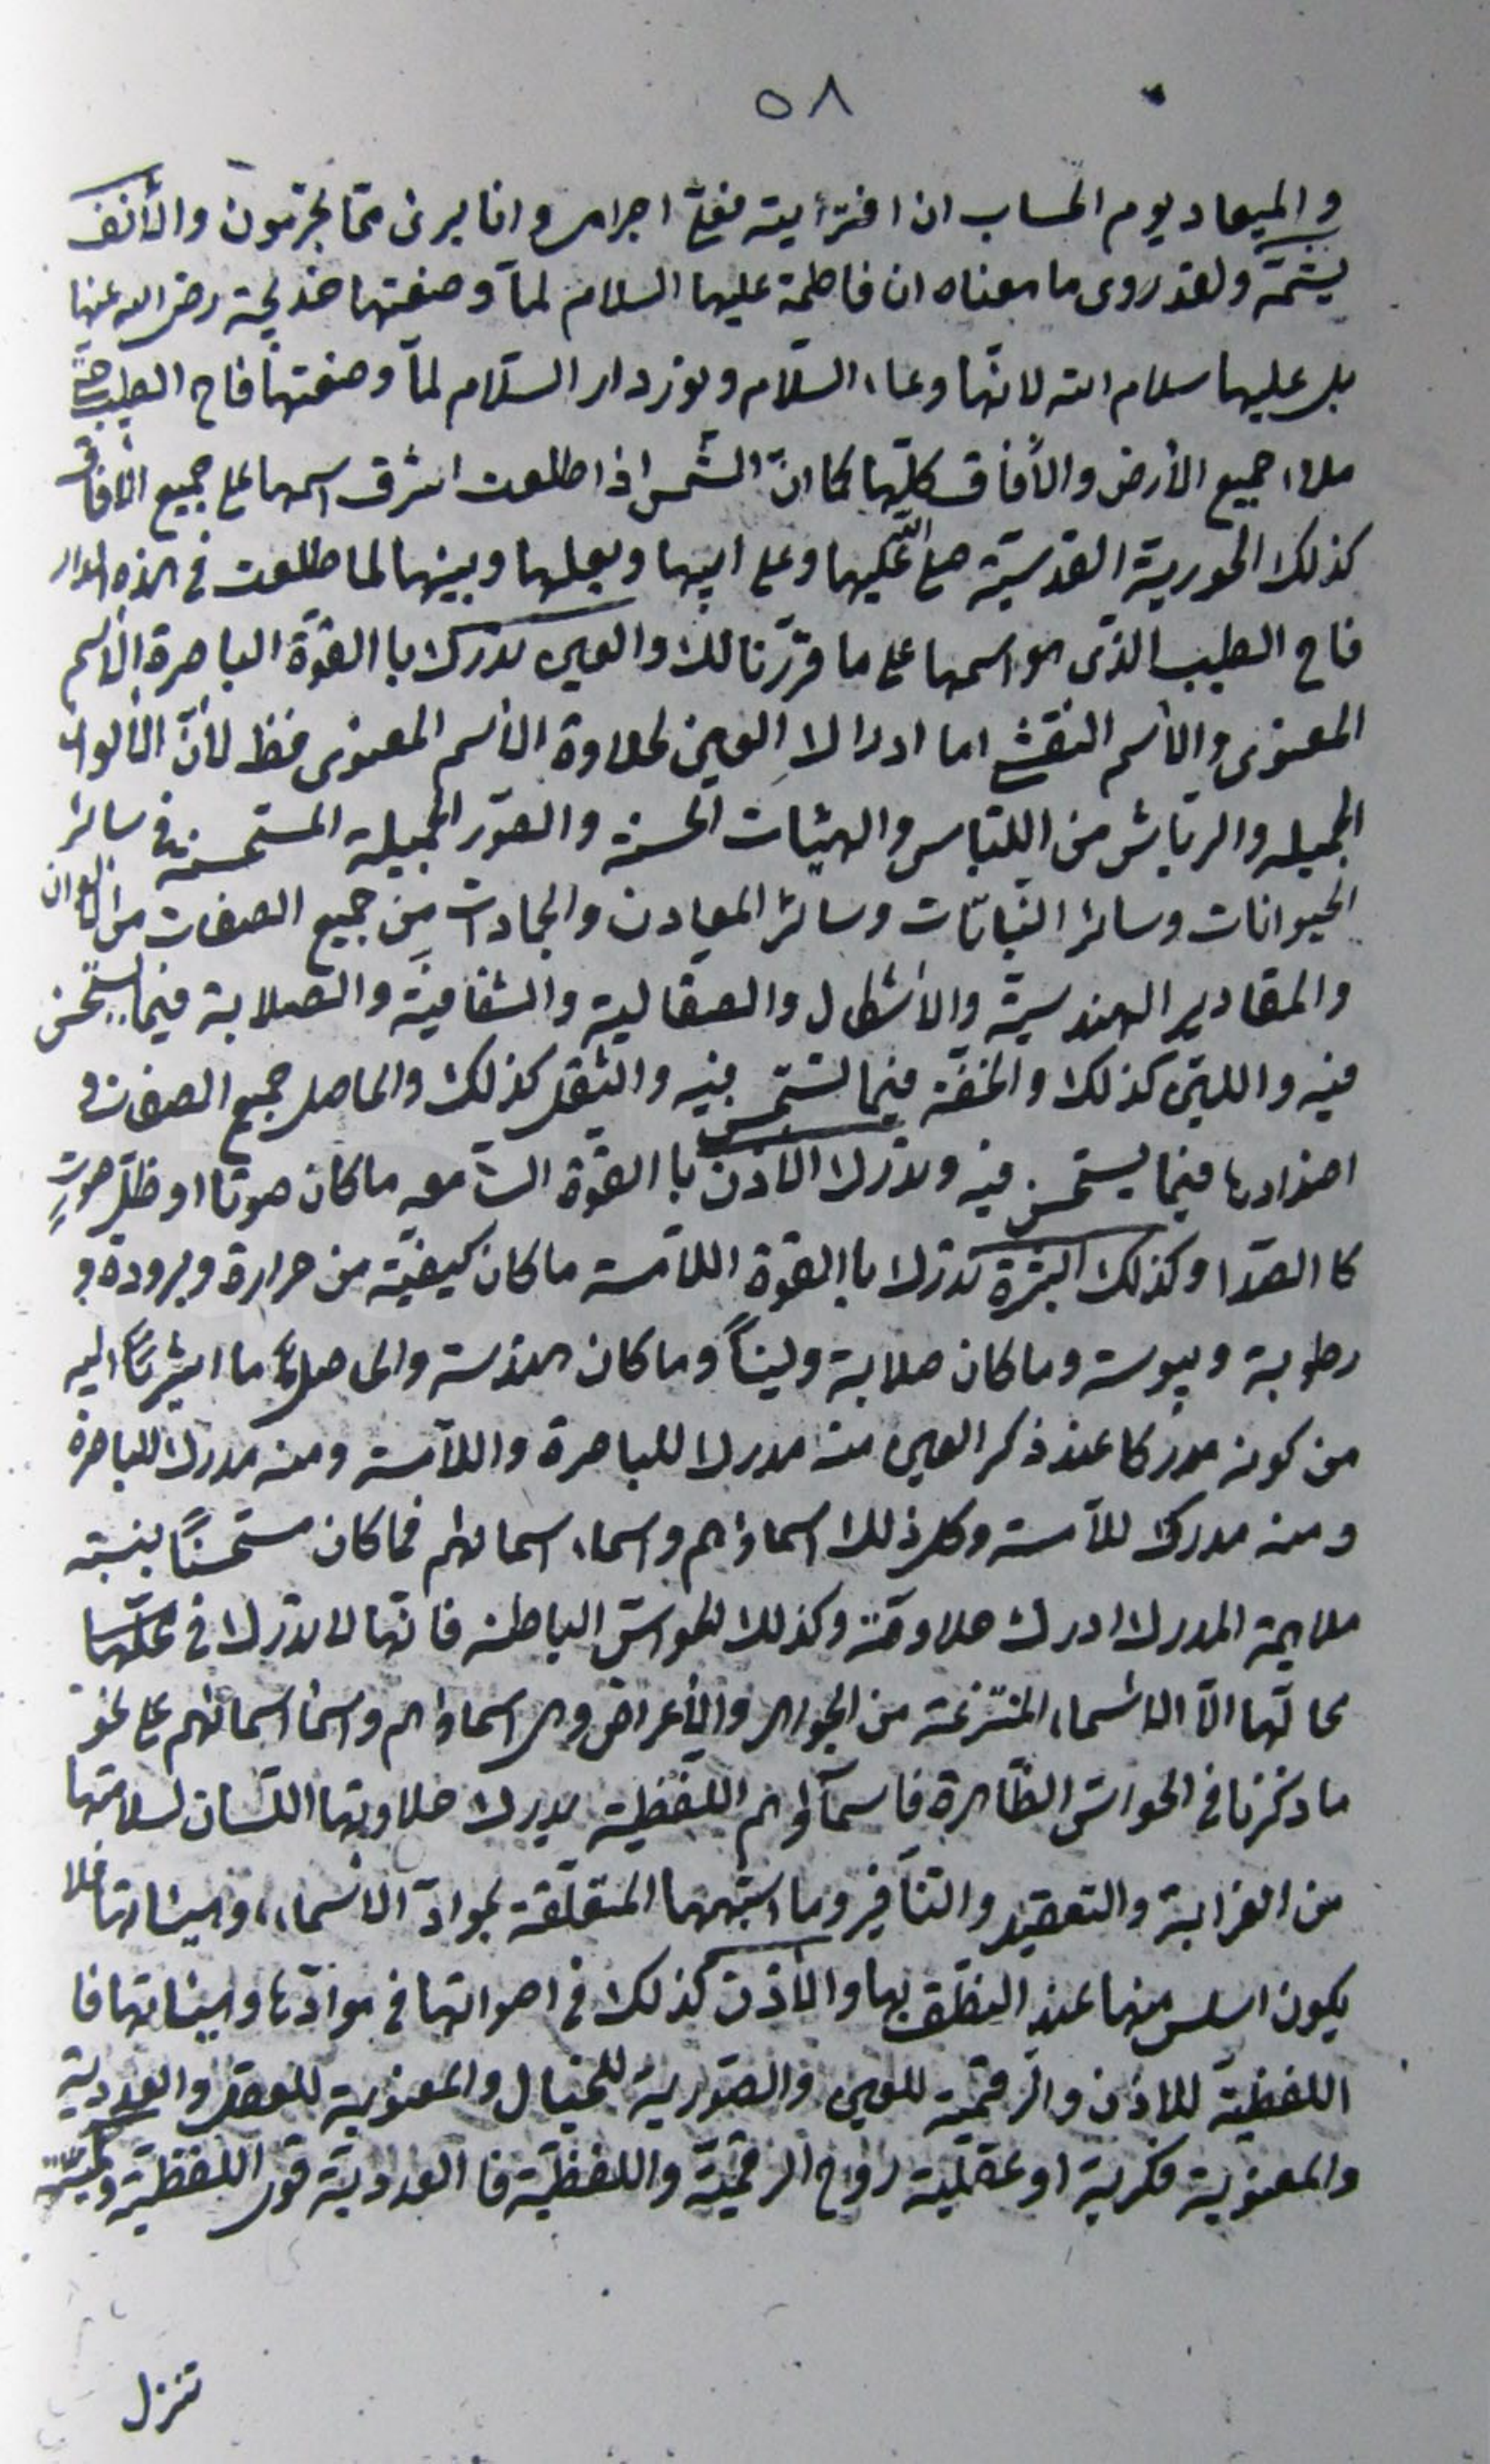 ٥٨
و الميعاد يوم الحساب ان افتريته فعلي اجرامي و انا بريئ مما تجرمون والأنف
يشمّه ولقد روى ما معناه ان فاطمة عليها السلام لمّا وضعتها خديجة رضي الله عنها
بل عليها سلام الله لانّها وعاء السّلام و نور دار السّلام لمّا وضعتها فاح الطيب حتّى
ملاء جميع الأرض والأفاق كلّها كما انّ الشّمس اذا طلعت اشرق اسمها على جميع الأفاق
كذلك الحورية القدسيّة صلى الله عليها وعلى ابيها وبعلها وبنيها لما طلعت في هذه الدار
فاح الطيب الذّى هو اسمها على ما قررّنا لك والعين تدرك باالقوّة الباصرة الأسم
المعنوى والأسم النقشي اما ادراك العين لحلاوة الأسم المعنوى فظ لأنّ الألوان
الجميله والرياش من اللّباس والهيئات الحسنه والصّور الجميلة المستحسنة في سائر
الحيوانات وسائر النّباتات وسائر المعادن والجمادات من جميع الصفات من الألوان
والمقادير الهندسيّة والأشكال والصقالية والشفافيّة والصلابة فيما يستحسن
فيه واللين كذلك والخفّة فيما تستحسن فيه والثقل كذلك والحاصل جميع الصفات و
اضدادها فيما يستحسن فيه وتدرك الأذن باالقوّة السّامعه ماكان صوتا او ظلّ صوتٍ
كاالصّدا وكذلك البشرة تدرك باالقوة اللّامسة ماكان كيفيّة من حرارة وبرودة و
رطوبة ويبوسة وماكان صلابة وليناً وماكان هندسة والحاصل ما اشرنا اليه
من كونه مدركا عند ذكر العين منه مدرك للباصرة واللّامسة ومنه مدرك للباصرة
ومنه مدرك للاّمسة وكل ذلك اسماؤهم واسماء اسمائهم فماكان مستحسناً بنسبته
ملايمة المدرك ادرك حلاوته وكذلك الحواسّ الباطنه فانّها لا تدرك في محلّها
بحالّها الّا الأسماء المنتزعة من الجواهر والأعراض وهى اسماؤهم واسماء اسمائهم على نحو
ما ذكرنا في الحواسّ الظّاهرة فاسماؤهم اللفظيّه يدرك حلاوتها اللّسان لسلامتها
من الغرابة والتعقيد والتنافر وما اشبهها المتعلّقة بموادّ الأسماء وهيئاتها فلا
يكون اسلس منها عند النطق بها والأذن كذلك في اصواتها في موادّها وهيئاتها فا
اللفظيّة للأذن والرقميّة للعين والصّورية للخيال والمعنوية للعقل والعددية
والمعنوية فكرية او عقليّة روح الرقميّة واللفظيّة فا العددية قوى اللفظيّة و
تنزل